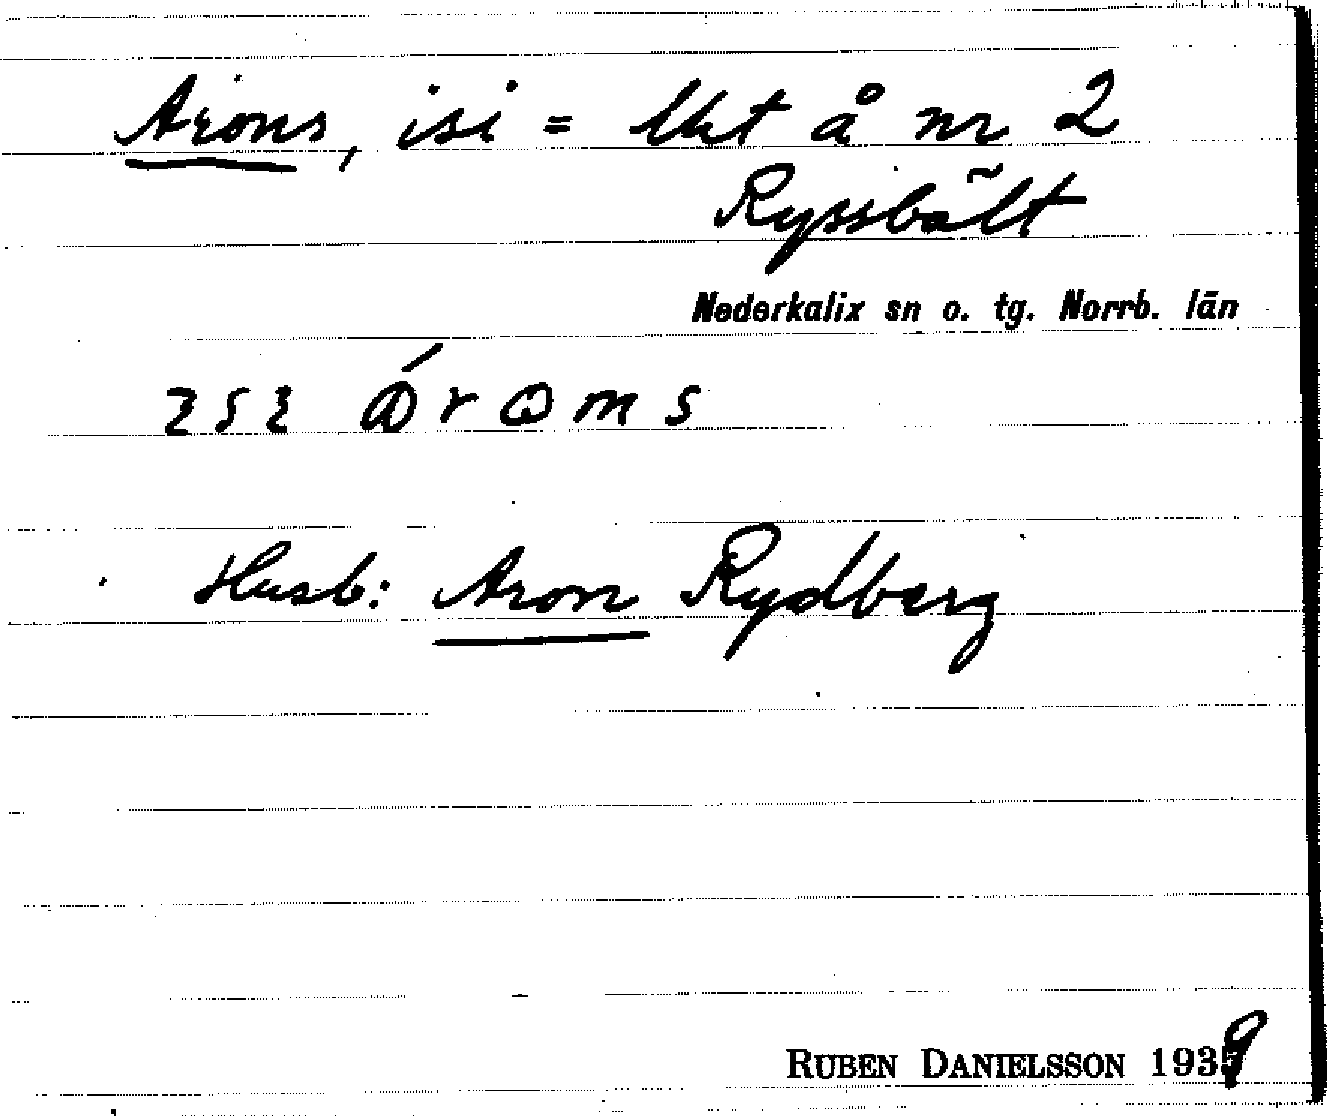 Arons, isi = Ust å nr 2
Ryssbält
Nederkalix sn o. tg. Norrb. län
Husb: Aron Rydberg
RUBEN DANIELSSON 1939